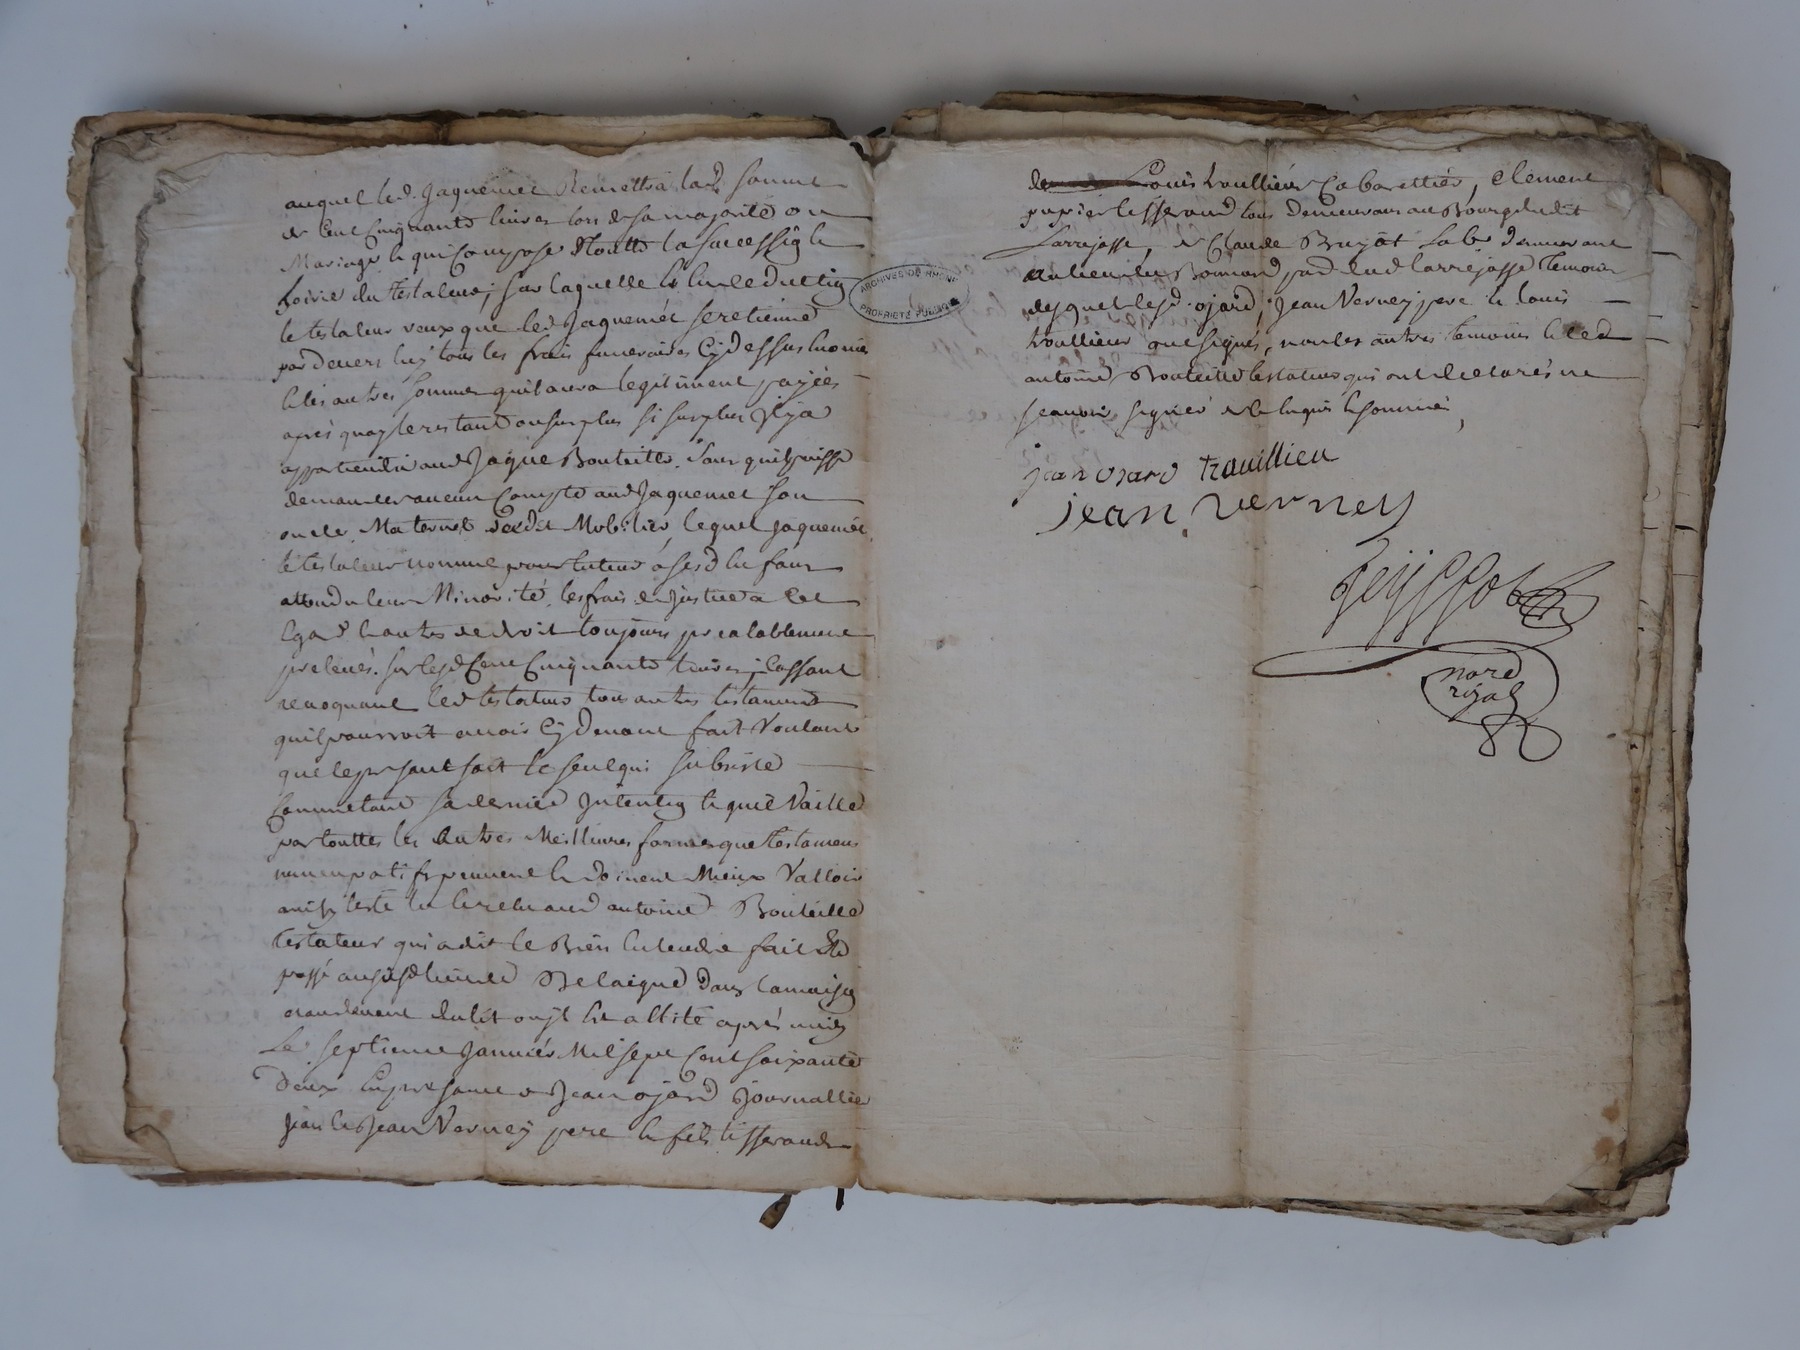 auquel led. Jaquemet Remettra lad. somme
de Cent Cinquante livres lors de sa majorité ou
Mariage, ce qui Compose toutte la succession et
hoirie du testateur, sur laquelle
le testateur veux que led Jaquemet se retienne
par devers luy tous les frais funeraires Cydessus
et les autres sommes quil aura legitiment payées
aprés quoy le restant ou surplus si surplus il y a
appartiendra aud Jaque Bouteille. sans quil puisse
demander aucun Compte aud Jaquemet son
oncle Maternel dudit Mobilier, lequel Jaquemet
le testateur nomme pour tuteur a sesd enfans
attendu leur Minorité, les frais de Justice a cet
Egard et autres de droit toujours prealablement
prelevés. sur lesd Cent Cinquante livres; Cassant
revoquant led testateur tous autres testament
quil pourroit avoir Cydevant fait Voulant
que le presant soit le seul qui subsiste
Contenant sa derniere Intention et que Vaille
par touttes les autres Meilleures formes que testamens
nuncupatifs peuvent et doivent Mieux Valloir
ainsy testé et led Antoine Bouteille
testateur qui a dit le Bien Entendre fait et
passé aud lieu de Belaigue dans la maison
et au devant du lit ou il est allité aprés midy
Le septieme Janvier Mil sept Cent soixante
Deux En presance de Jean ojard Journallier
Jean et Jean Verney pere et fils tisserands
Louis troullieur Cabarettier, Clement
papier tisserand tous Demeurans au Bourg dudit
Larrajasse, et Claude Bruyat Lab. demeurant
au lieu du Bonnard par. dud larrajasse temoins
desquels lesd. ojard, Jean Verney pere et louis
troullieur ont signés, non les autres temoins et led
antoine Bouteille testateur qui ont declarés ne
scavoir signer de ce enquis et sommés,
jean ojard trouillieu
jean verney
Feyssot
nore
royal
ARCHIVES DU RHONE
PROPRIETE PUBLIQUE